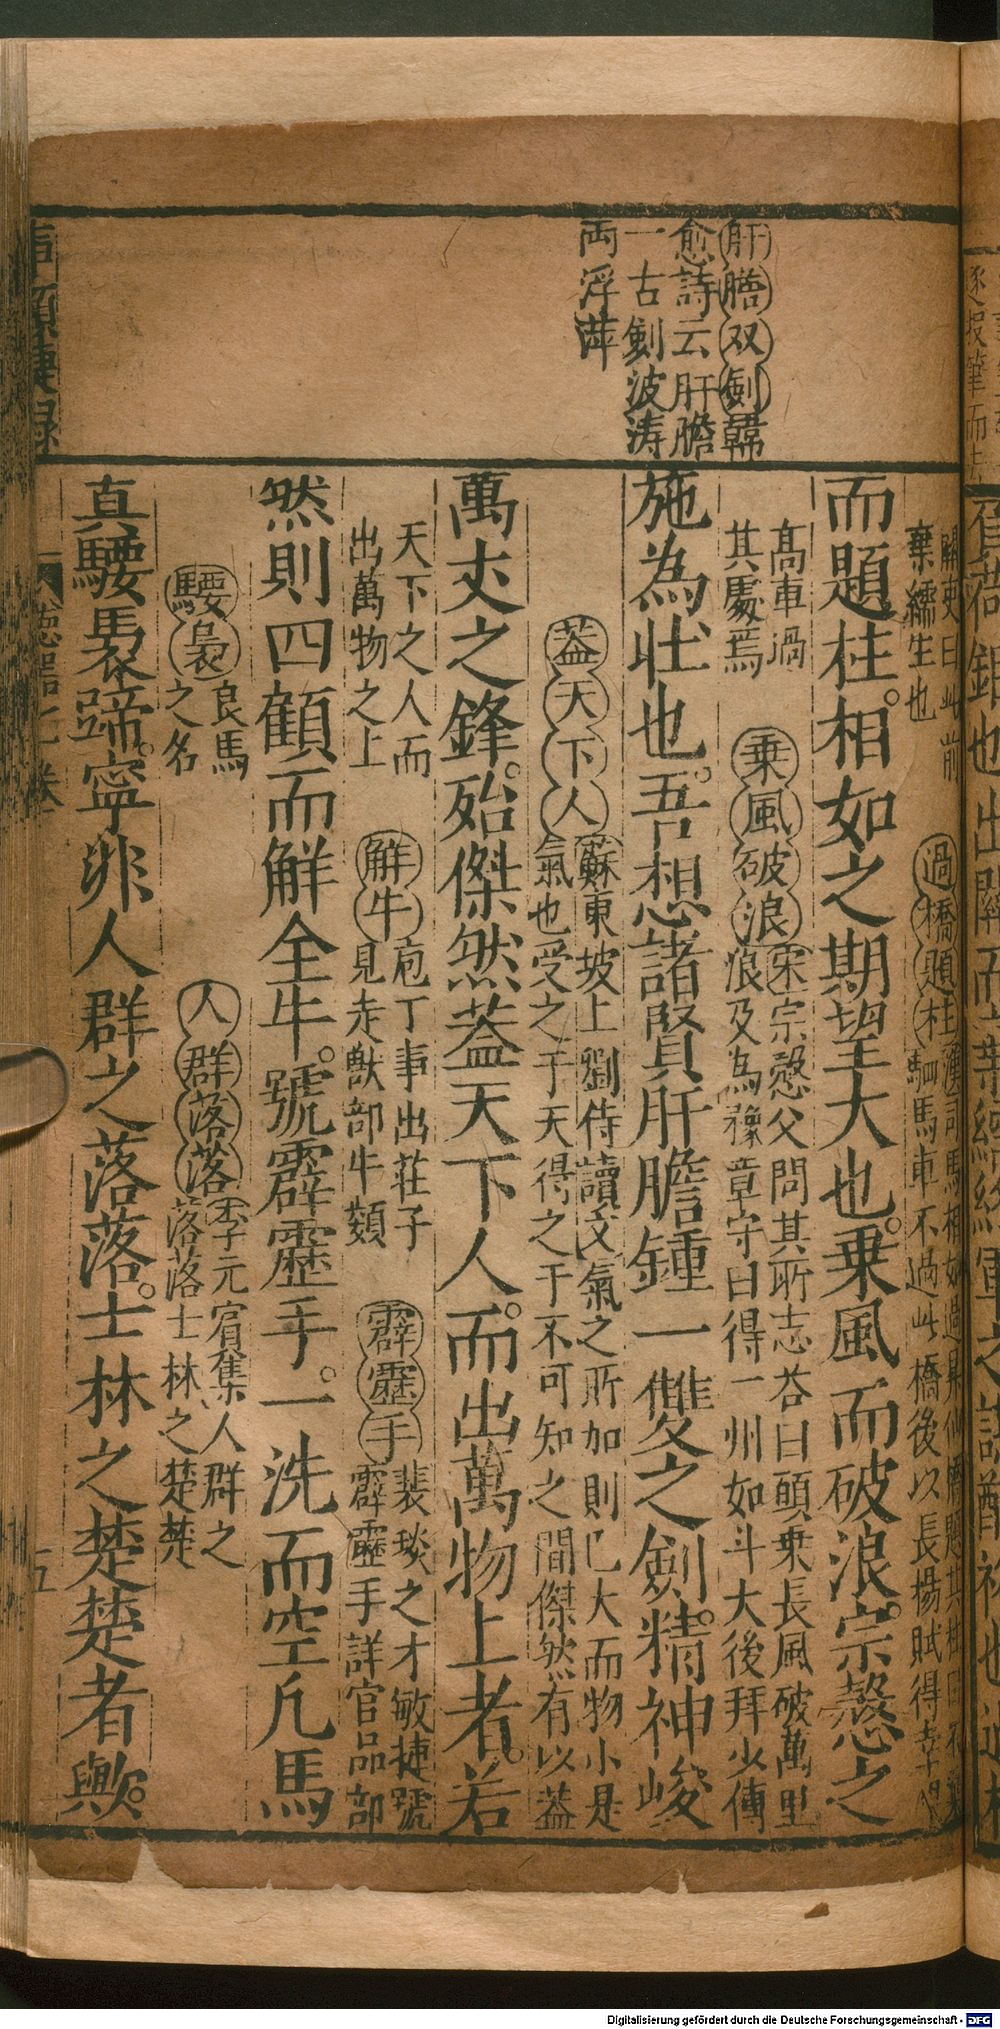 肝膽双劍韓
愈詩云肝膽
一古劍波涛
両浮萍
關吏曰此前
棄繻生也
過橋題柱漢司馬相如過昇仙橋題其柱曰不乗
駟馬車不過此橋後以長揚賦得幸
而題柱。相如之期望大也。乗風而破浪。宗愨之
高車過
其處焉
乗風破浪宋宗愨父問其所志荅曰頭乗長風破萬里
浪及為豫章守曰得一州如斗大後拜少傳
施為壮也。吾想諸賢肝膽鍾一雙之劍。精神峻
蓋天下人蘇東坡上劉侍讀文氣之所加則已大而物小是
氣也受之于天得之于不可知之間傑然有以葢
萬丈之鋒。殆傑然蓋天下人。而出萬物上者。若
天下之人而
出萬物之上
解牛庖丁事出荘子
見走獸部牛類
霹靂手裴琰之才敏捷號
霹靂手詳官品部
然則四顧而解全牛。號霹靂手。一洗而空凡馬
騕裊良馬
之名
人群落落李元賓集人群之
落落士林之楚楚
真騕褭蹄。寧非人群之落落。士林之楚楚者歟。
七卷
五
Digitalisierung gefördert durch die Deutsche Forschungsgemeinschaft - DFG